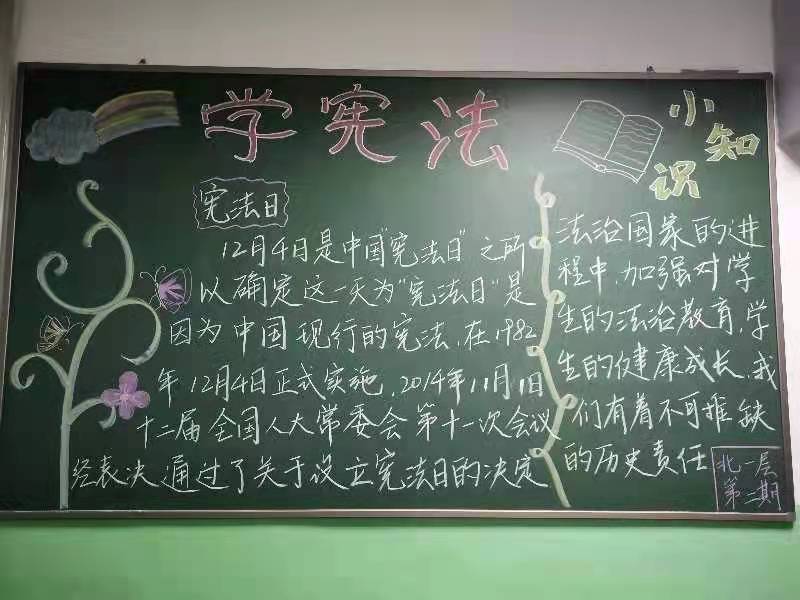 学宪法
小知识
宪法日
12月4日是中国"宪法日"之所
以确定这一天为"宪法日"是
因为中国现行的宪法,在1982
年12月4日正式实施,2014年11月1日
十二届全国人大常委会第十一次会议
经表决,通过了关于设立宪法日的决定
法治国家的进
程中,加强对学
生的法治教育,学
生的健康成长,我
们有着不可推缺
的历史责任
北一层
第二期